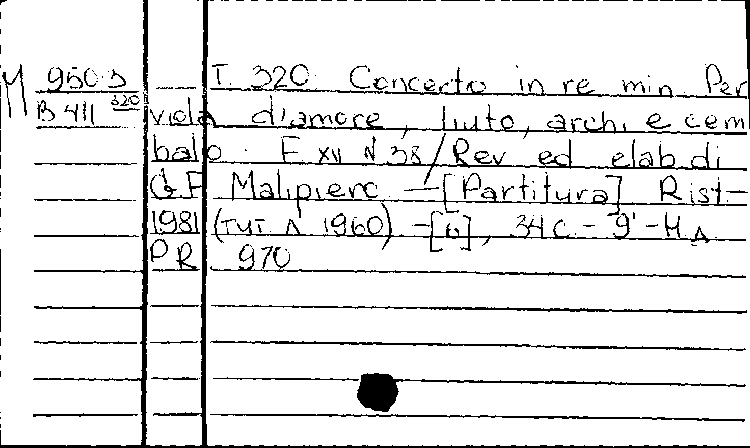 M 950.3 T. 320. Concerto in re min. Per
B 411 320 viola d'amore, liuto, archi e cem
balo. F XII N 38 / Rev ed elab. di
G F Malipiero - [Partitura] Rist-
1981 (TUT. N 1960) - [6], 34 c. - 9' - H A
PR 970